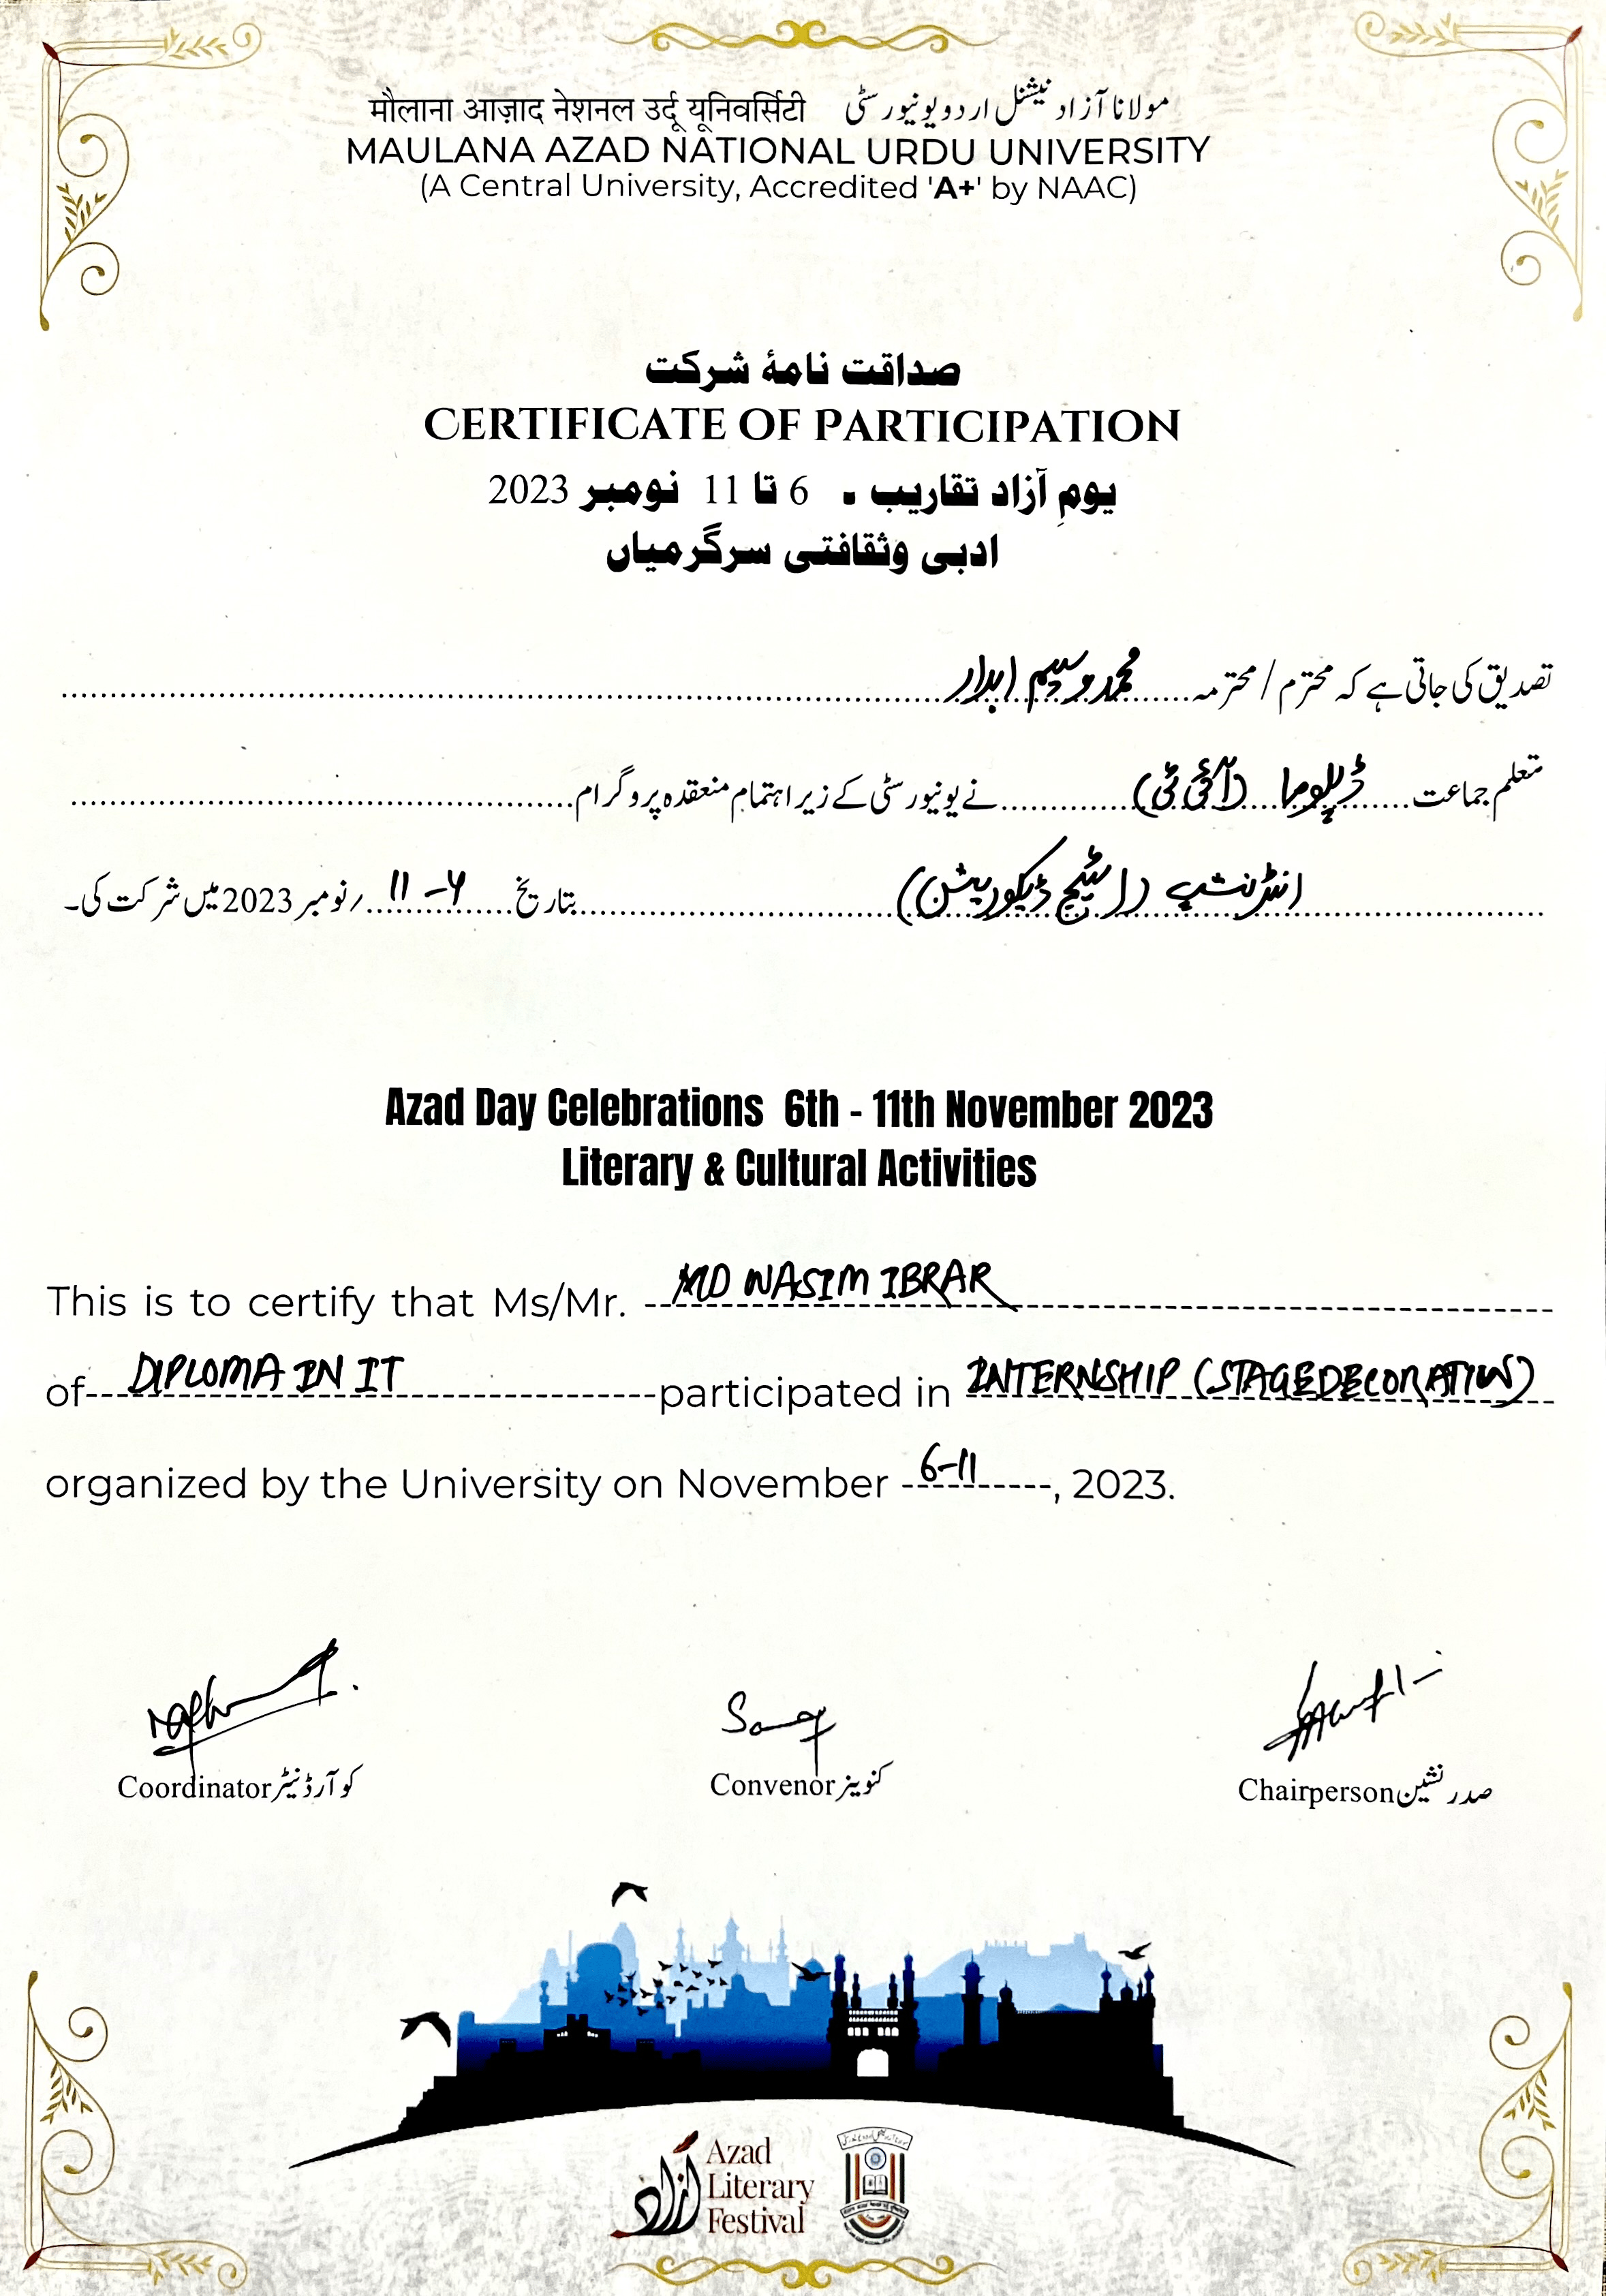 मौलाना आज़ाद नेशनल उर्दू यूनिवर्सिटी مولانا آزاد نیشنل اردو یونیورسٹی
MAULANA AZAD NATIONAL URDU UNIVERSITY
(A Central University, Accredited 'A+' by NAAC)
صداقت نامۂ شرکت
CERTIFICATE OF PARTICIPATION
یومِ آزاد تقاریب ۔ 6 تا 11 نومبر 2023
ادبی وثقافتی سرگرمیاں
تصدیق کی جاتی ہے کہ محترم / محترمہ محمد وسیم ابرار
متعلم جماعت ڈپلوما (آئی ٹی) نے یونیورسٹی کے زیر اہتمام منعقدہ پروگرام
انٹرنشپ (اسٹیج ڈیکوریشن) بتاریخ ۶-۱۱ /نومبر 2023 میں شرکت کی۔
Azad Day Celebrations 6th - 11th November 2023
Literary & Cultural Activities
This is to certify that Ms/Mr. MD WASIM IBRAR
of DIPLOMA IN IT participated in INTERNSHIP (STAGE DECORATION)
organized by the University on November 6-11, 2023.
Coordinator کوآرڈنیٹر
Convenor کنوینر
Chairperson صدر نشین
آزاد
Azad
Literary
Festival